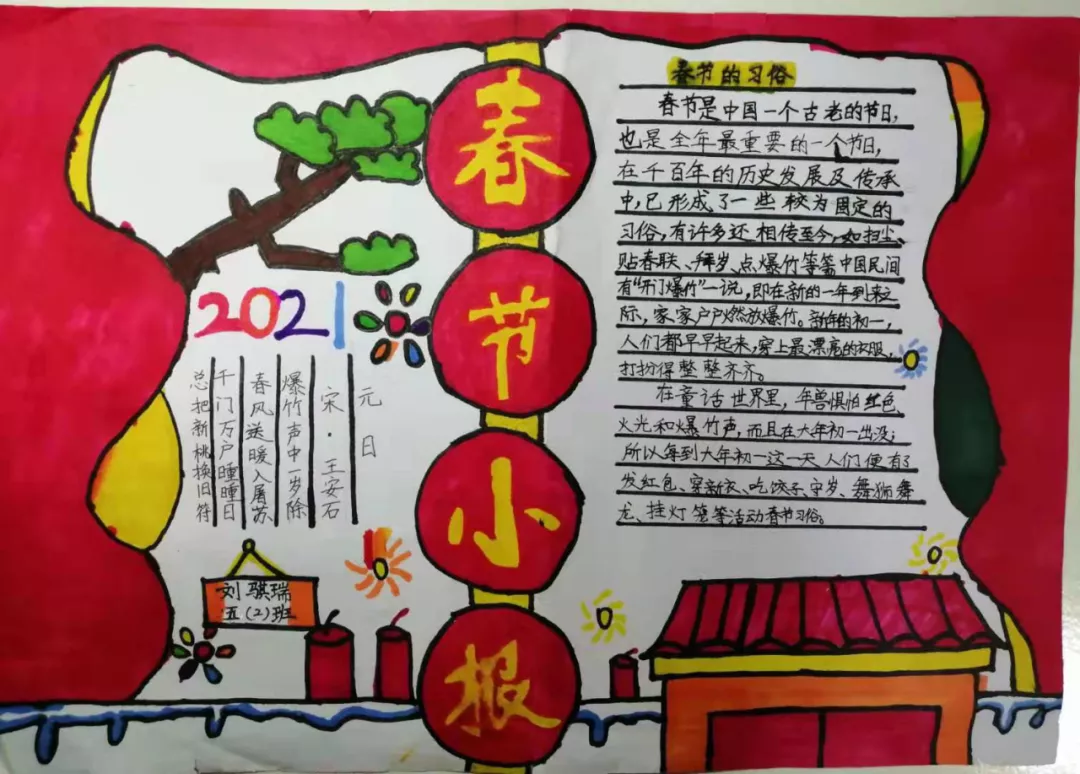 春节小报
2021
元日
宋·王安石
爆竹声中一岁除
春风送暖入屠苏
千门万户睡睡日
总把新桃换旧符
刘骐瑞
五(2)班
春节的习俗
春节是中国一个古老的节日,
也是全年最重要的一个节日,
在千百年的历史发展及传承
中,已形成了一些校为固定的
习俗,有许多还相传至今,如扫尘、
贴春联、拜岁、点爆竹等等中国民间
有"开门爆竹"一说,即在新的一年到来之
际,家家户户燃放爆竹。新年的初一,
人们都早早起来,穿上最漂亮的衣服,
打扮得整整齐齐。
在童话世界里,年兽惧怕红色、
火光和爆竹声,而且在大年初一出没;
所以每到大年初一这一天人们便有了
发红包、穿新衣、吃饺子、守岁、舞狮舞
龙、挂灯笼等活动春节习俗。